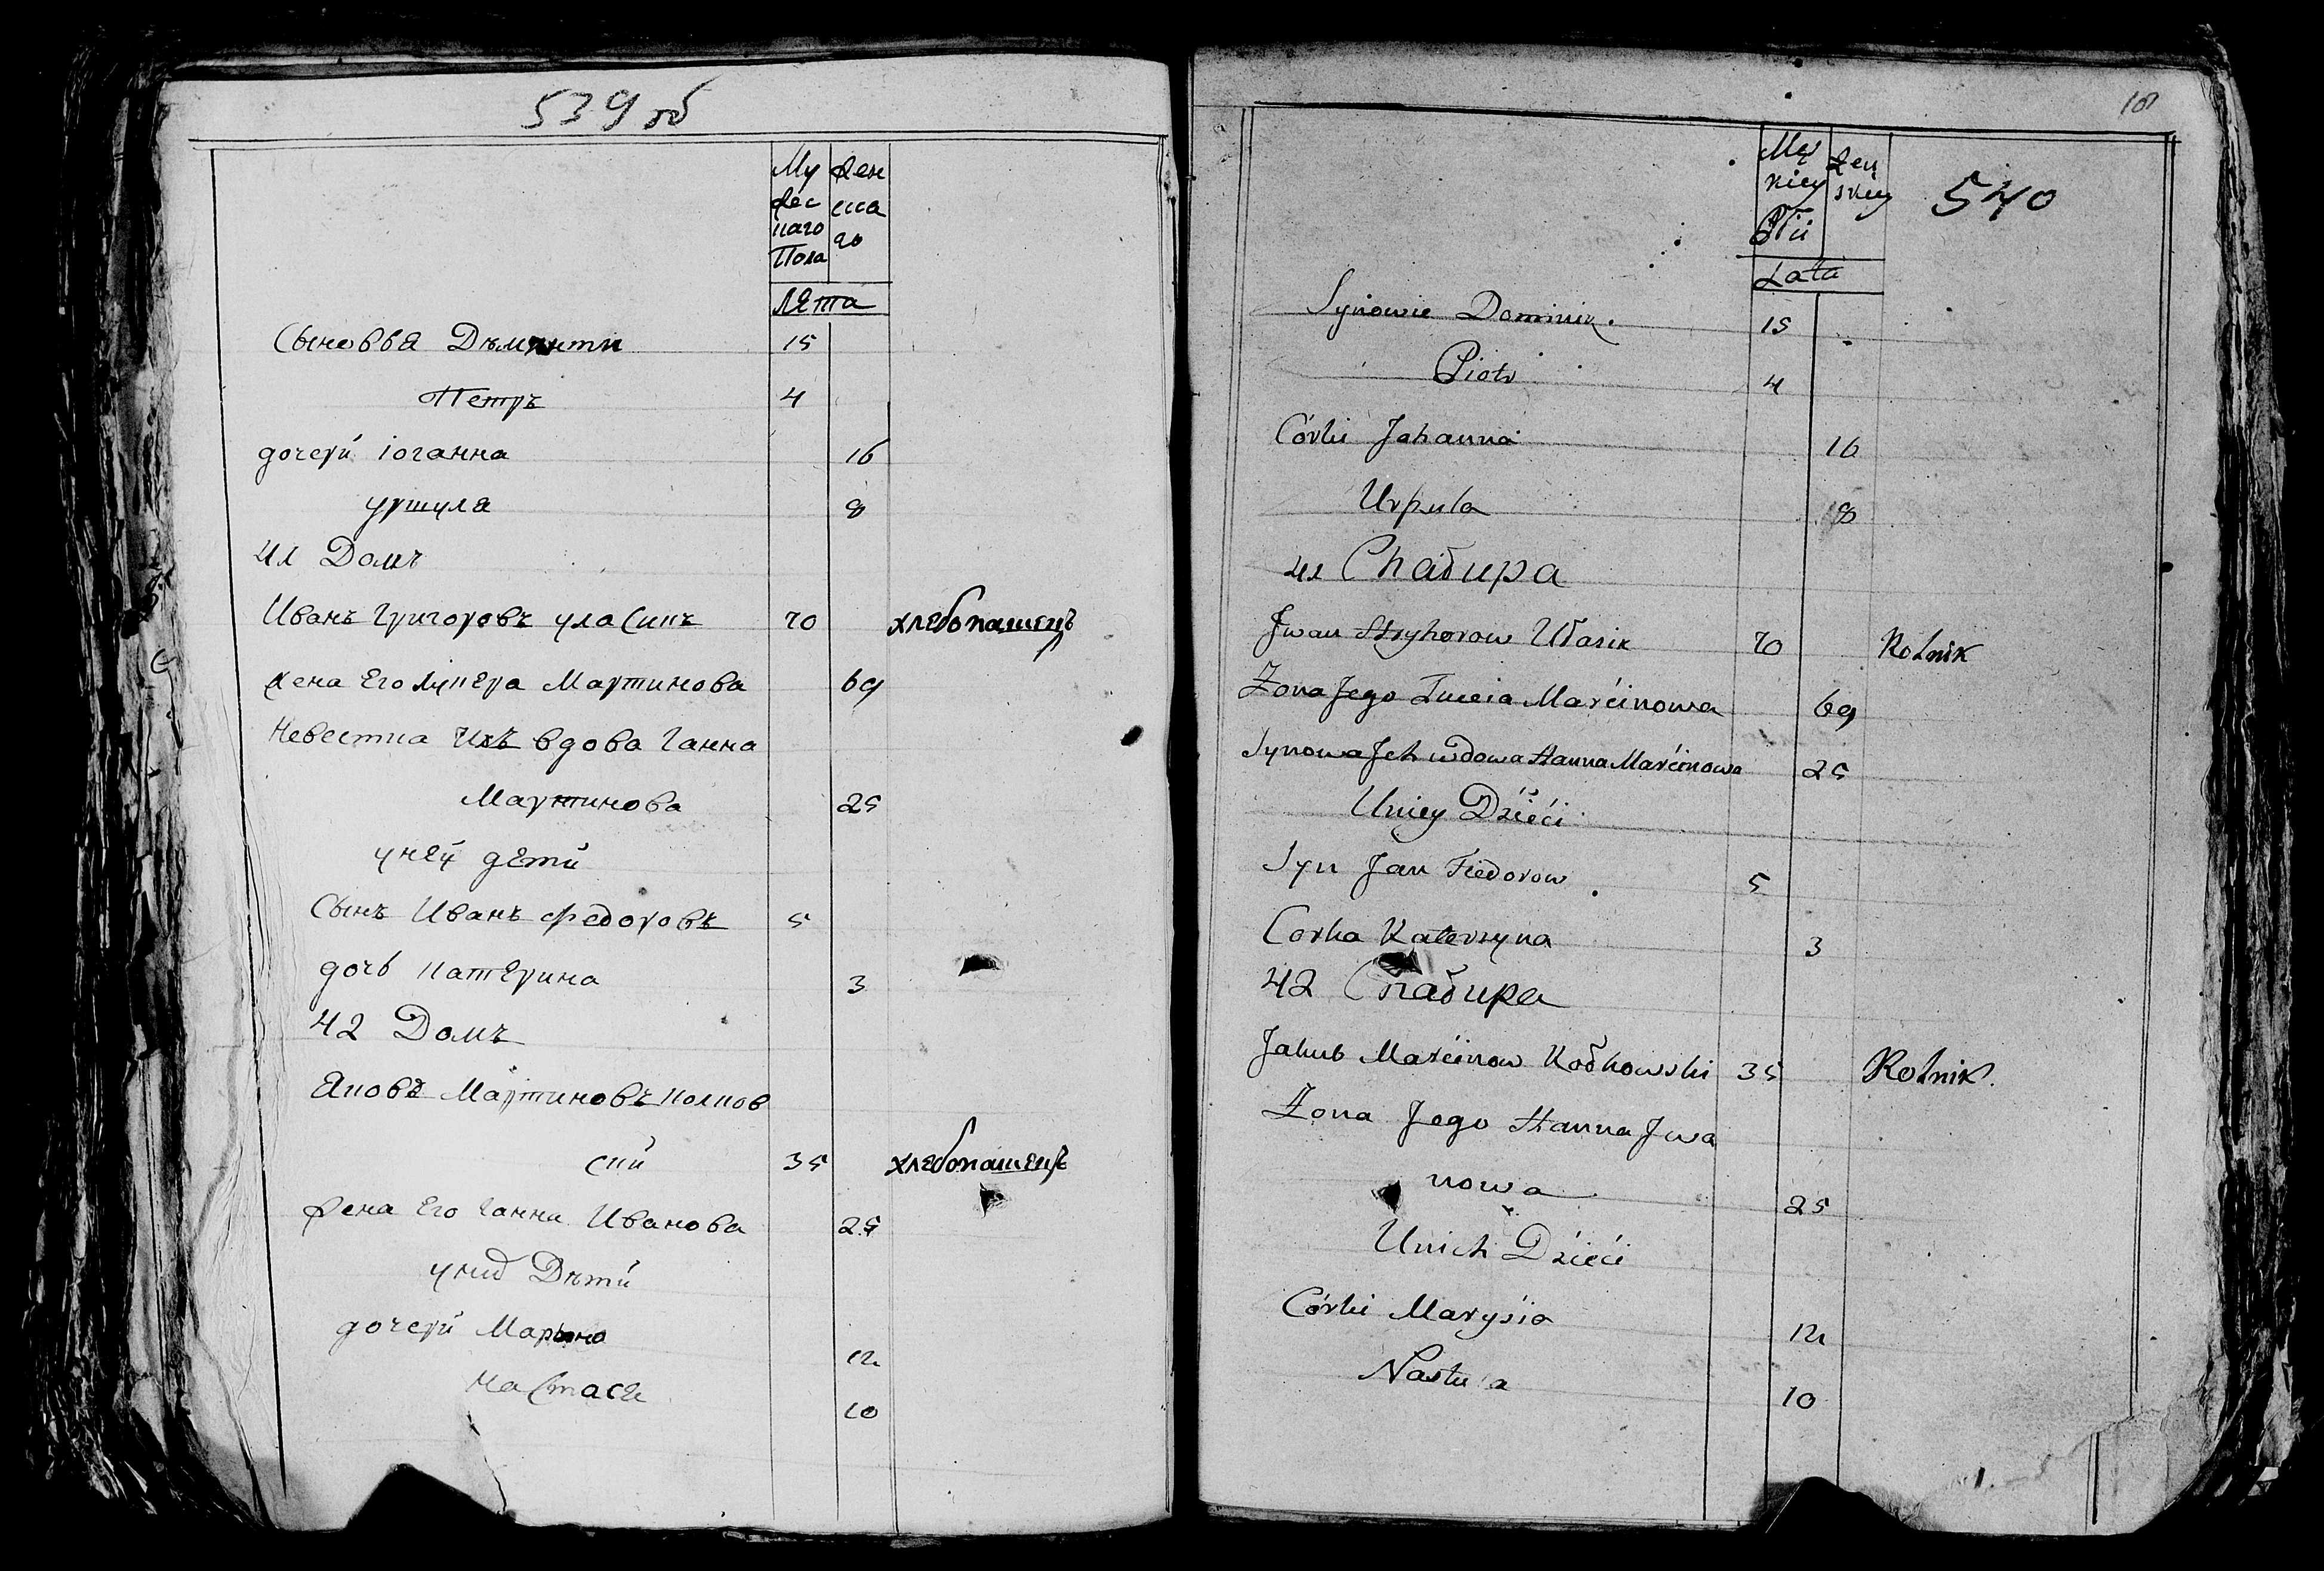 539 об
Му жес каго Пола
жен ска го
Лета
Сыновья Дементи 15
Петръ 4
дочери Iоганна 16
уршуля 8
41 Домъ
Иванъ Григоровъ уласикъ 70 хлебопашецъ
жена Его луцеya Мартинова 69
Невестка Ихъ вдова Ганна
Мартинова 25
унеи дети
Сынъ Иванъ Федоровъ 5
дочь катерина 3
42 Домъ
Яковъ Мартиновъ колков
ски 35 хлебопашецъ
жена Его Ганна Иванова 25
уних Дети
дочери Марьяна 12
настася 10
101
540
Mę skiey Płci
Żeń skiey
Lata
Synowie Dominik. 15
Piotr 4
Córki Johanna 16
Urszula 8
41 Chałupa
Jwan Hryhorow Ułasik 70 Rolnik
Żona Jego Łuceia Marcinowa 69
Synowa Jch wdowa Hanna Marcinowa 25
Uniey Dzieci
Syn Jan Fiedorow 5
Corka Katerzyna 3
42 Chałupa
Jakub Marcinow Kołkowski 35 Rolnik.
Żona Jego Hanna Jwa
nowa 25
Unich Dzieci
Córki Marysia 12
Nastu a 10